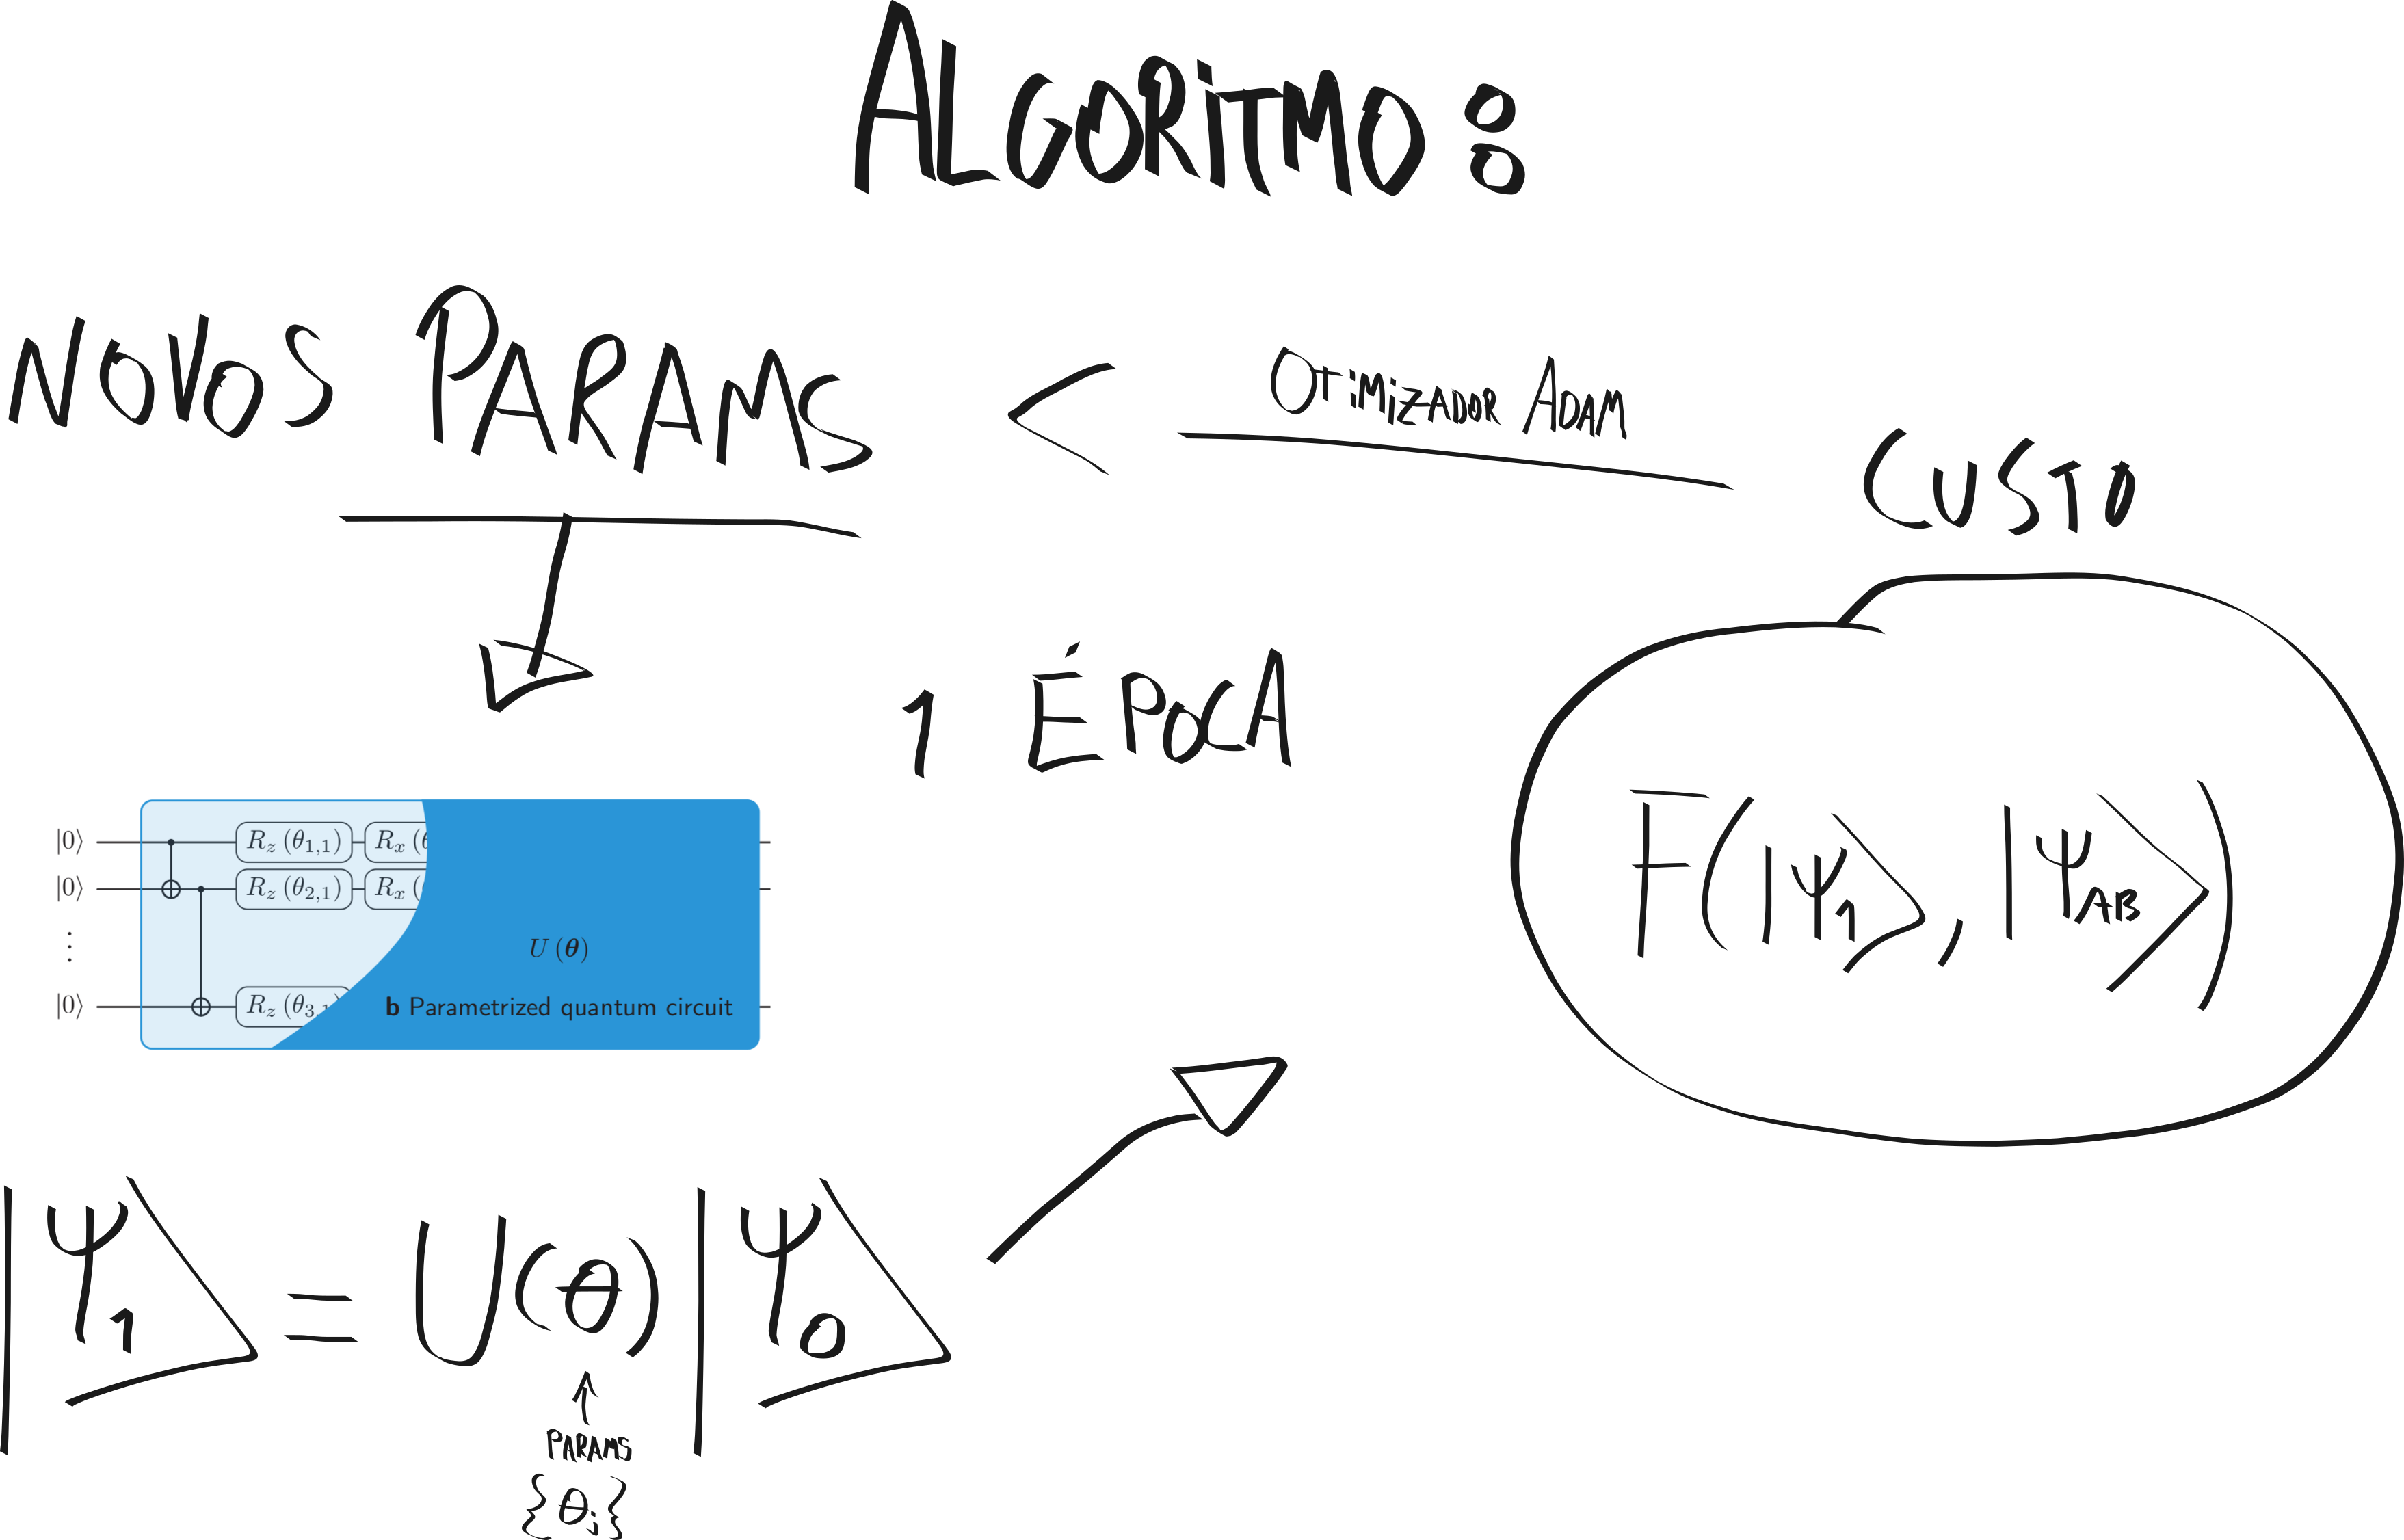 ALGORITMO:
NOVOS PARAMS
OTIMIZADOR ADAM
CUSTO
1 ÉPOCA
F(|Ψ₁⟩, |Ψ_AB⟩)
|0⟩ R_z (θ₁,₁) R_x (θ
|0⟩ R_z (θ₂,₁) R_x (
⋮
U (θ)
|0⟩ R_z (θ₃,₁)
b Parametrized quantum circuit
|Ψ₁⟩ = U(θ) |Ψ₀⟩
PARAMS
{θⱼ}